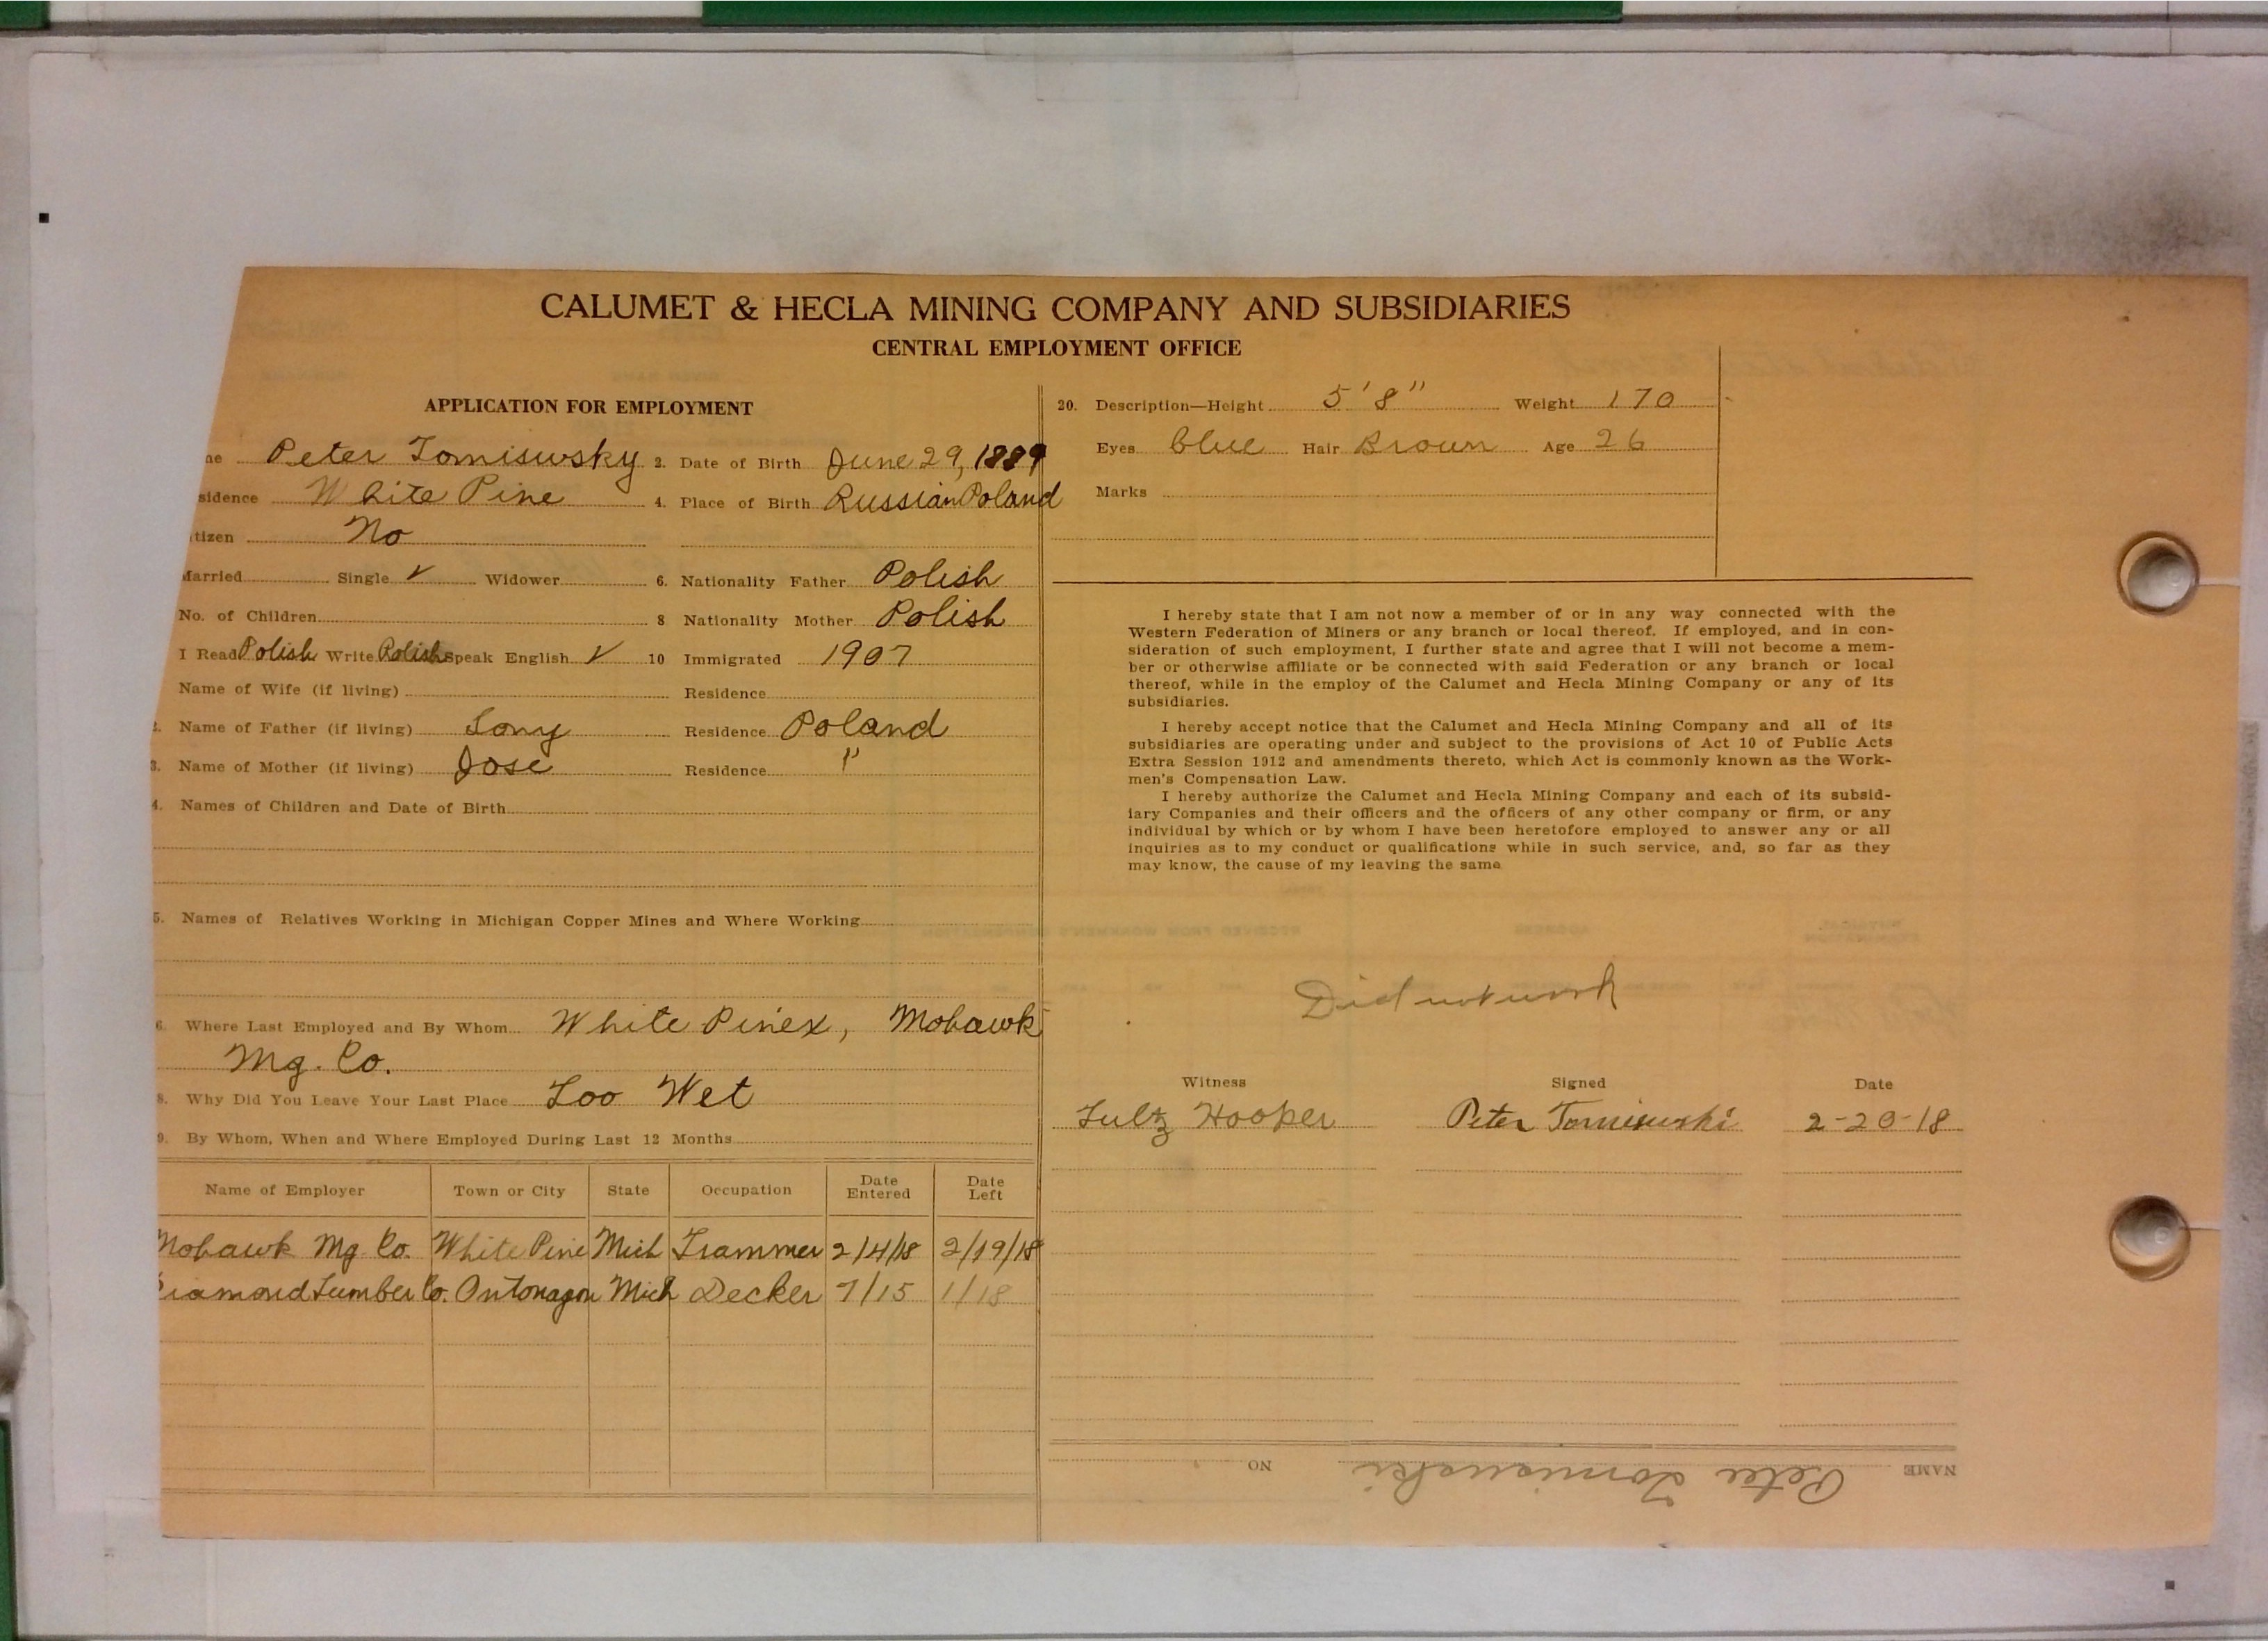 CALUMET & HECLA MINING COMPANY AND SUBSIDIARIES
CENTRAL EMPLOYMENT OFFICE
APPLICATION FOR EMPLOYMENT
me Peter Tomisuwsky 2. Date of Birth June 29, 1889
sidence White Pine 4. Place of Birth Russian Poland
tizen No
Married Single ✓ Widower 6. Nationality Father Polish
No. of Children 8 Nationality Mother Polish
I Read Polish Write Polish Speak English ✓ 10 Immigrated 1907
Name of Wife (if living) Residence
2. Name of Father (if living) Tony Residence Poland
3. Name of Mother (if living) Jose Residence "
4. Names of Children and Date of Birth
5. Names of Relatives Working in Michigan Copper Mines and Where Working
6. Where Last Employed and By Whom White Pinex, Mohawk
Mg. Co.
8. Why Did You Leave Your Last Place Too Wet
9. By Whom, When and Where Employed During Last 12 Months
Name of Employer Town or City State Occupation Date Entered Date Left
Mohawk Mg Co. White Pine Mich Trammer 2/4/18 2/19/18
Diamond Lumber Co. Ontonagon Mich Decker 7/15 1/18
20. Description—Height 5'8" Weight 170
Eyes blue Hair Brown Age 26
Marks
I hereby state that I am not now a member of or in any way connected with the
Western Federation of Miners or any branch or local thereof. If employed, and in con-
sideration of such employment, I further state and agree that I will not become a mem-
ber or otherwise affiliate or be connected with said Federation or any branch or local
thereof, while in the employ of the Calumet and Hecla Mining Company or any of its
subsidiaries.
I hereby accept notice that the Calumet and Hecla Mining Company and all of its
subsidiaries are operating under and subject to the provisions of Act 10 of Public Acts
Extra Session 1912 and amendments thereto, which Act is commonly known as the Work-
men's Compensation Law.
I hereby authorize the Calumet and Hecla Mining Company and each of its subsid-
iary Companies and their officers and the officers of any other company or firm, or any
individual by which or by whom I have been heretofore employed to answer any or all
inquiries as to my conduct or qualifications while in such service, and, so far as they
may know, the cause of my leaving the same
Did not work
Witness Signed Date
Hooper Peter Tomisuwski 2-20-18
NAME Peter Tomisuwski NO